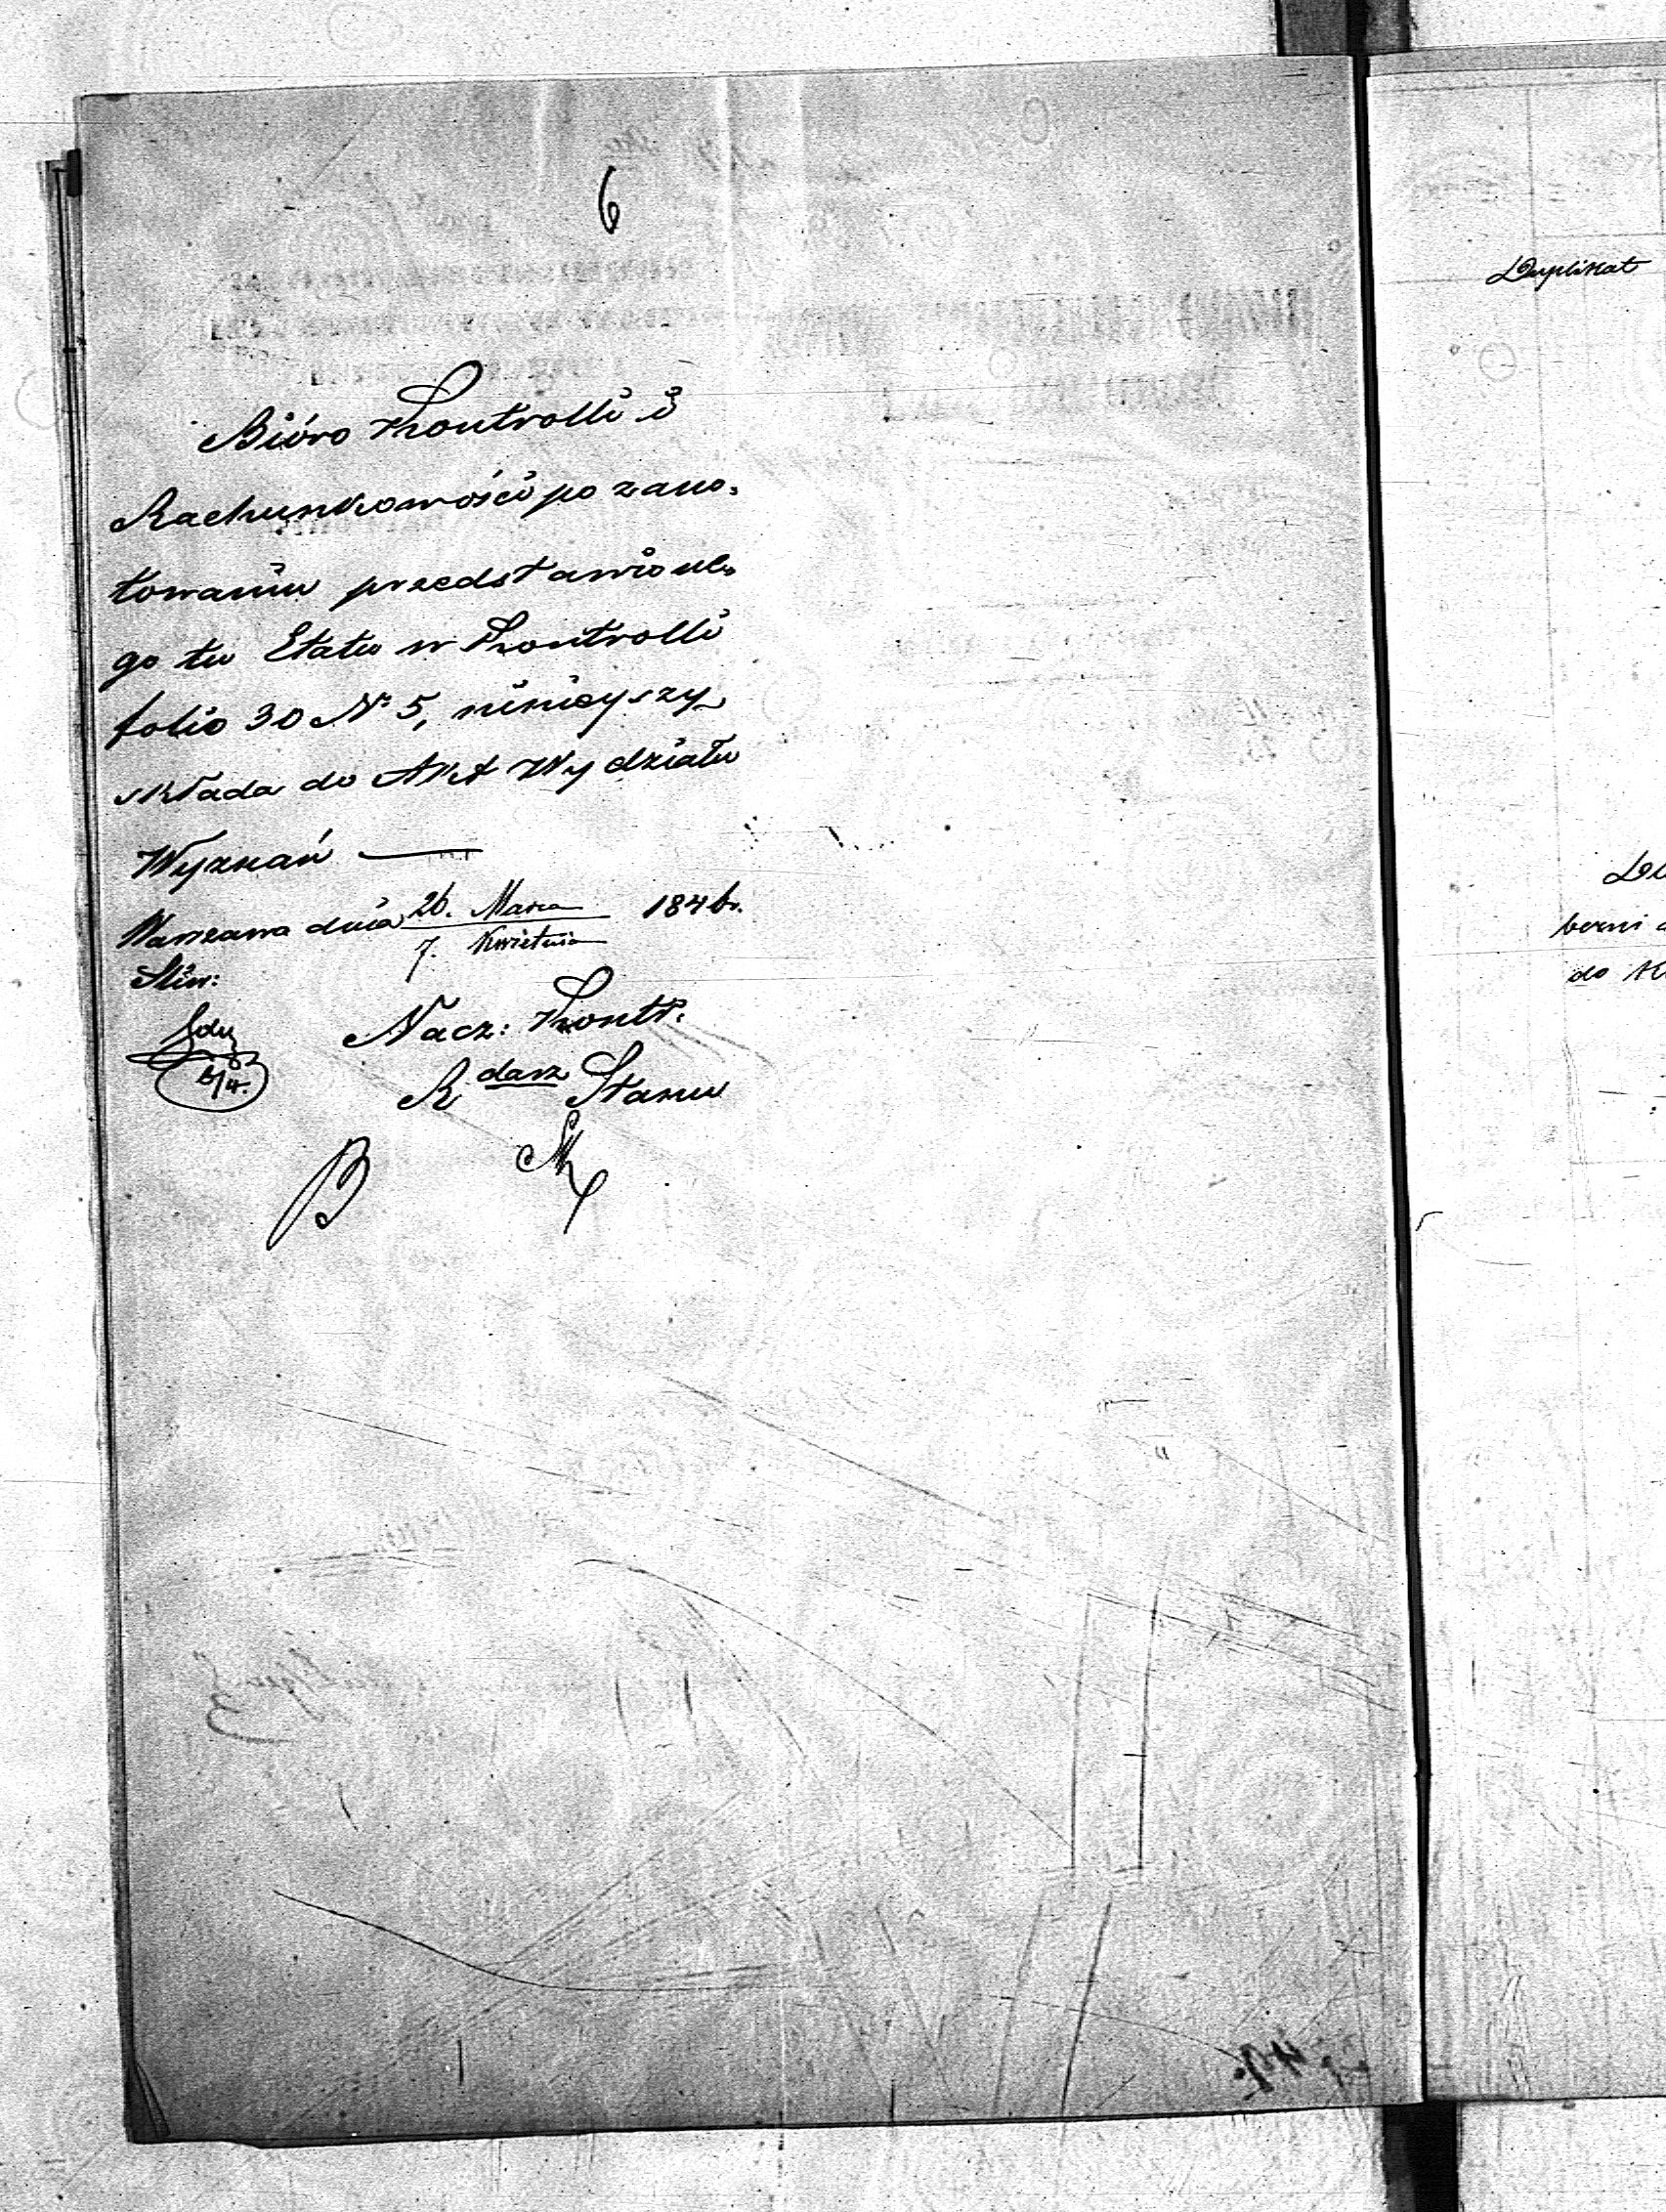 6
Bióro Kontrolli i
Rachunkowości po zano,
towaniu przedstawione,
go tu Etatu w Kontrolli
folio 30 Nº 5, niniejszy
składa do Akt Wydziału
Wyznań —
Warszawa dnia 26. Marca 1846 r.
7. Kwietnia
Nacz: Kontr.
R darz Stanu
B
Duplikat
do